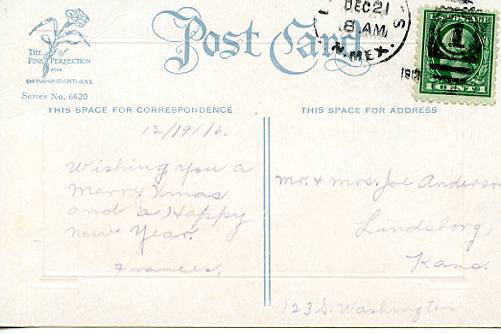 Post Card
DEC 21
8 AM
N. MEX.
U.S. POSTAGE
1 CENT 1
THE
PINK PERFECTION
Series No. 6620
THIS SPACE FOR CORRESPONDENCE
THIS SPACE FOR ADDRESS
12/19/16.
Wishing you a
Merry Xmas
and a Happy
New Year.
Frances.
Mr. & Mrs. Joe Anderson
Lindsborg,
Kans.
123 S. Washington